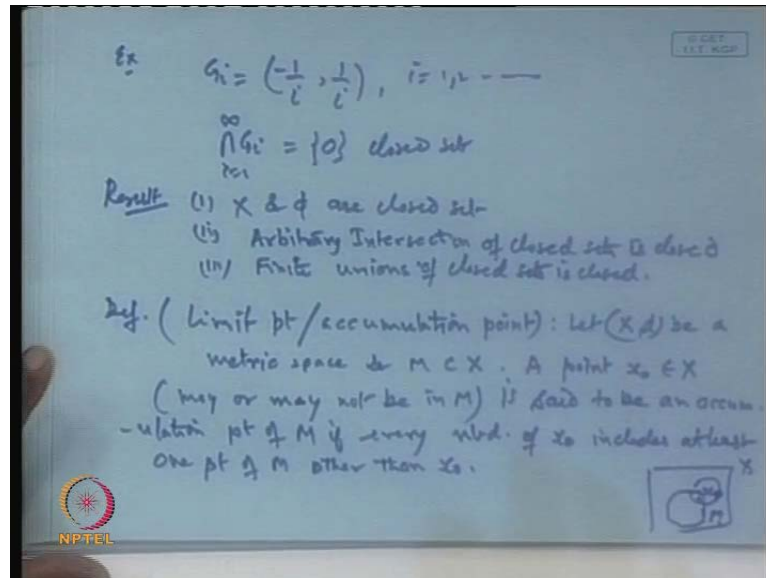 © CET
I.I.T. KGP
Ex Gi = (-1/i, 1/i), i = 1,2 -----
∞
∩ Gi = {0} closed set
i=1
Result (i) X & ϕ are closed set-
(ii) Arbitrary Intersection of closed sets is closed
(iii) Finite unions of closed sets is closed.
Def. (Limit pt/accumulation point): Let (X d) be a
metric space & M ⊂ X. A point x₀ ∈ X
(may or may not be in M) is said to be an accum-
-ulation pt of M if every nbd. of x₀ includes atleast
one pt of M other than x₀.
X
M
NPTEL